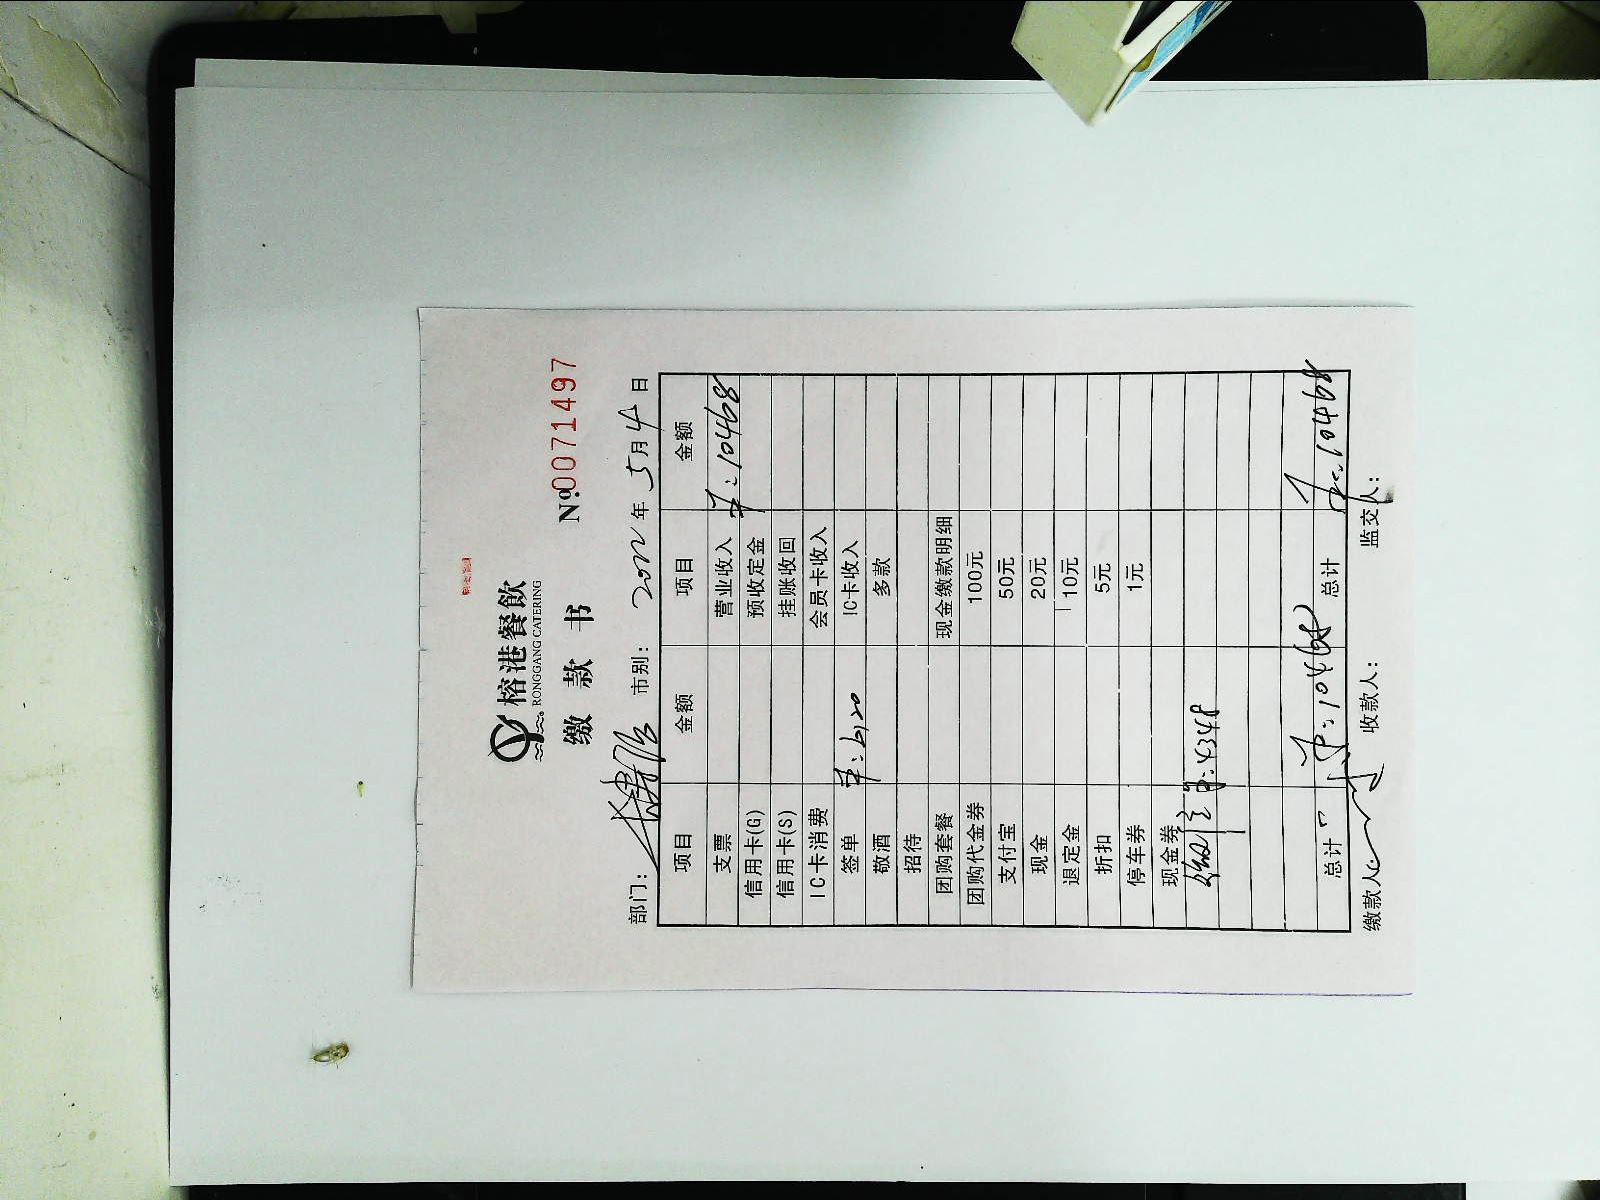 榕港餐飲
RONGGANG CATERING
缴 款 书
№:0071497
部门: 市别: 2022 年 5 月 4 日
项目 金额 项目 金额
支票 营业收入 平:10468
信用卡(G) 预收定金
信用卡(S) 挂账收回
IC卡消费 会员卡收入
签单 平:6120 IC卡收入
敬酒 多款
招待
团购套餐 现金缴款明细
团购代金券 100元
支付宝 50元
现金 20元
退定金 10元
折扣 5元
停车券 1元
现金券
平:4348
总计 平:10468 总计 平:10468
缴款人: 收款人: 监交人: